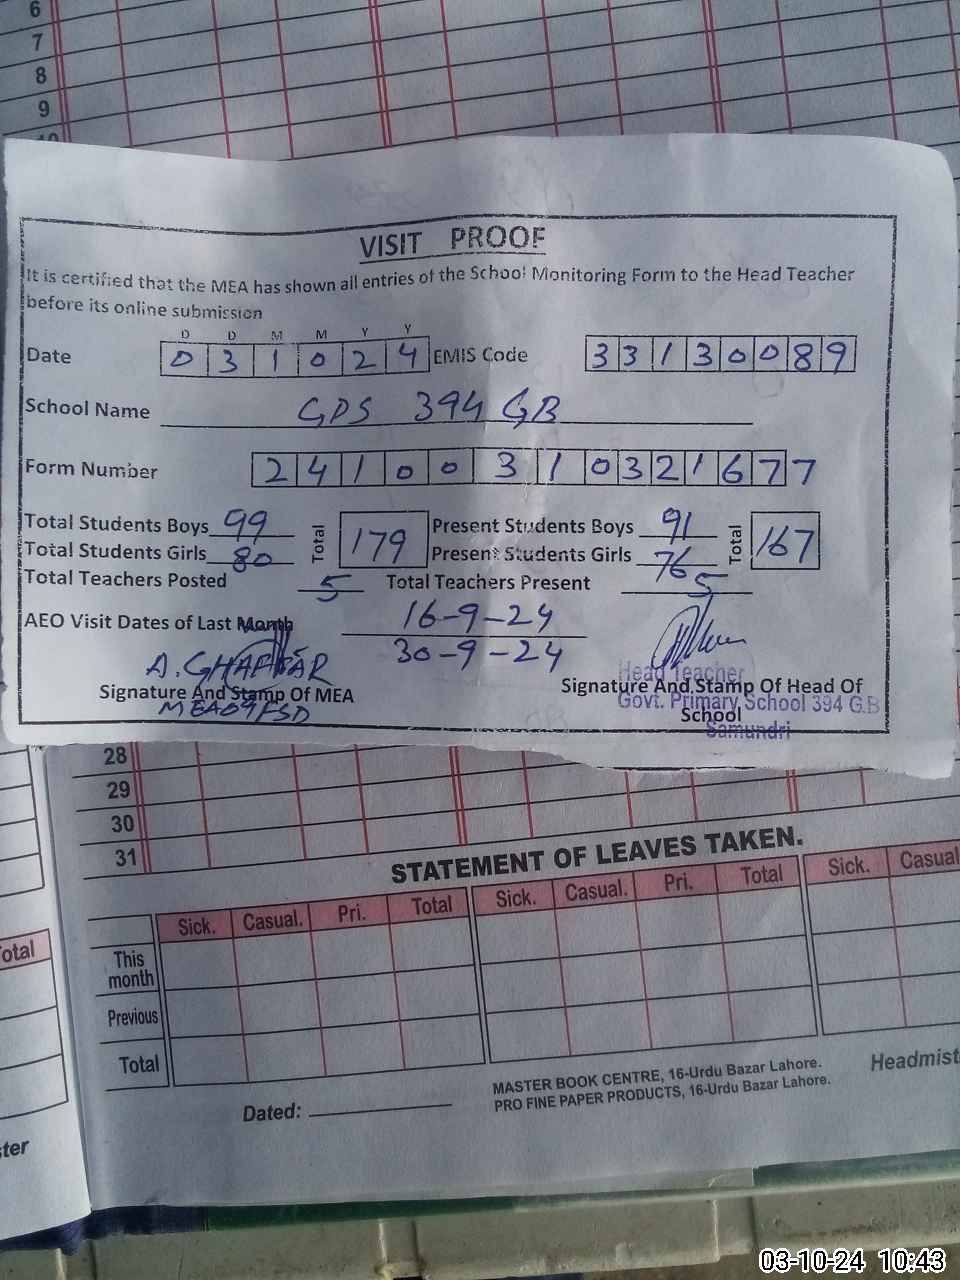 6
7
8
9
10
VISIT PROOF
It is certified that the MEA has shown all entries of the School Monitoring Form to the Head Teacher
before its online submission
D D M M Y Y
Date 0 3 1 0 2 4 EMIS Code 3 3 1 3 0 0 8 9
School Name GPS 394 GB
Form Number 2 4 1 0 0 3 1 0 3 2 1 6 7 7
Total Students Boys 99 Total 179 Present Students Boys 91 Total 167
Total Students Girls 80 Present Students Girls 76
Total Teachers Posted 5 Total Teachers Present 5
AEO Visit Dates of Last Month 16-9-24
30-9-24
A. GHAFFAR
Head Teacher
Signature And Stamp Of MEA Signature And Stamp Of Head Of
MEA09FSD Govt. Primary School 394 G.B
School
Samundri
28
29
30
31
STATEMENT OF LEAVES TAKEN.
Sick. Casual. Pri. Total Sick. Casual. Pri. Total Sick. Casual
This
month
Previous
Total
otal
Dated:
MASTER BOOK CENTRE, 16-Urdu Bazar Lahore.
PRO FINE PAPER PRODUCTS, 16-Urdu Bazar Lahore.
Headmist
ster
03-10-24 10:43